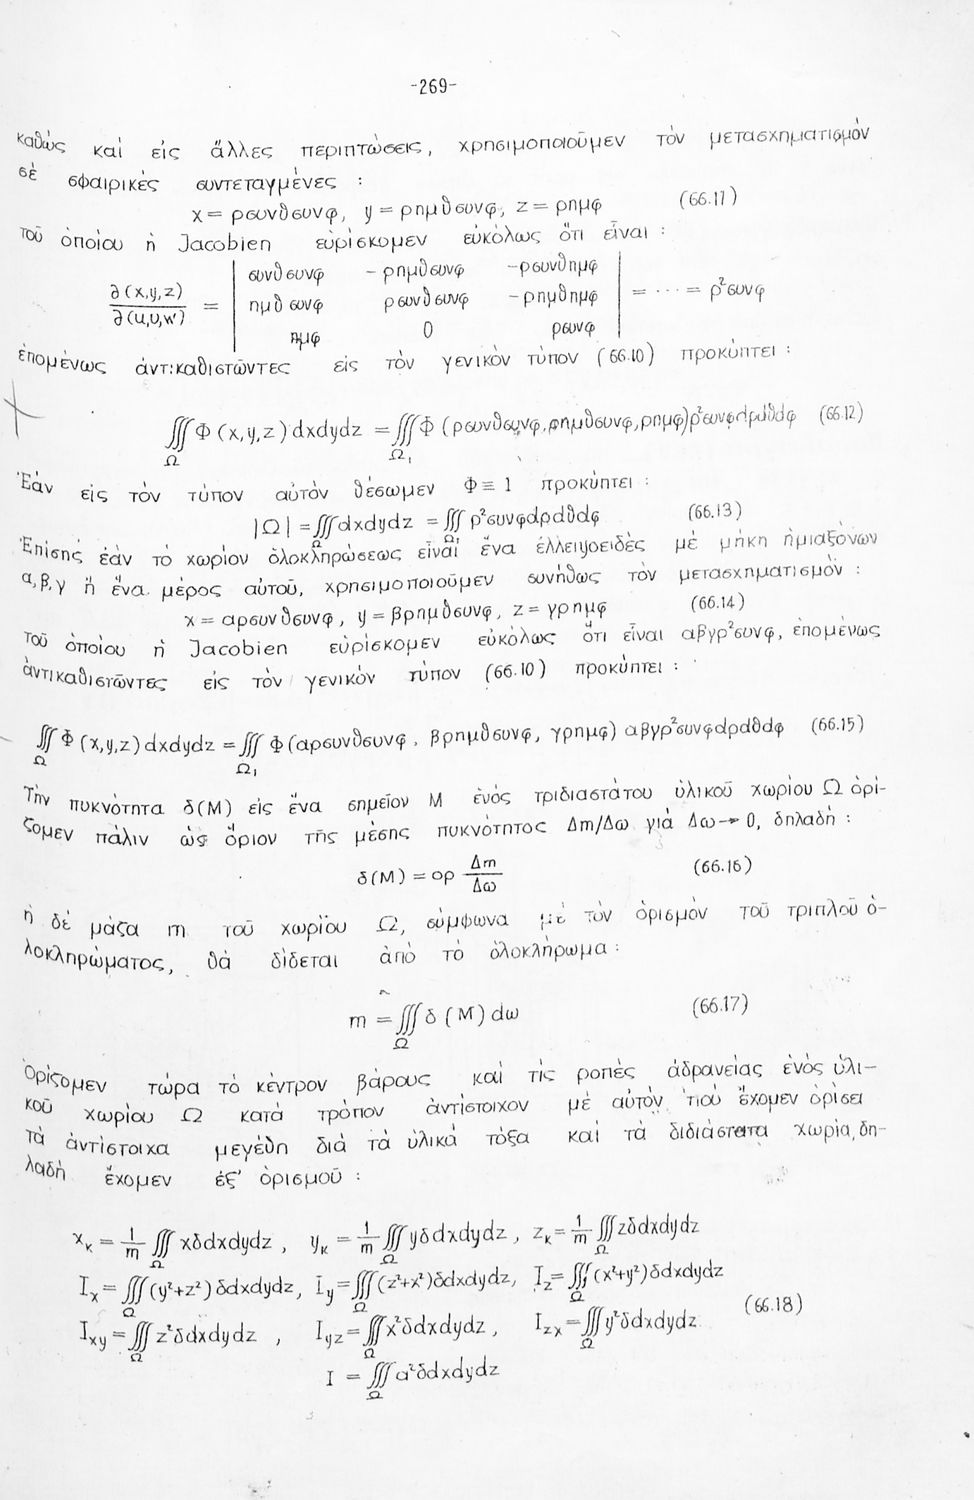 -269-
καθώς καί εἰς ἄλλες περιπτώσεις, χρησιμοποιοῦμεν τόν μετασχηματισμόν
σέ σφαιρικές συντεταγμένες :
x = ρσυνθσυνφ, y = ρημθσυνφ, z = ρημφ (66.11)
τοῦ ὁποίου ἡ Jacobien εὑρίσκομεν εὐκόλως ὅτι εἶναι :
∂(x,y,z)/∂(u,υ,w) = | συνθσυνφ -ρημθσυνφ -ρσυνθημφ
ημθσυνφ ρσυνθσυνφ -ρημθημφ
ημφ 0 ρσυνφ | = ··· = ρ²συνφ
ἑπομένως ἀντικαθιστῶντες εἰς τόν γενικόν τύπον (66.10) προκύπτει :
∭_Ω Φ(x,y,z)dxdydz = ∭_Ω₁ Φ(ρσυνθσυνφ,ρημθσυνφ,ρημφ)ρ²συνφdρdθdφ (66.12)
Ἐάν εἰς τόν τύπον αὐτόν θέσωμεν Φ≡1 προκύπτει :
|Ω| = ∭_Ω dxdydz = ∭_Ω₁ ρ²συνφdρdθdφ (66.13)
Ἐπίσης ἐάν τό χωρίον ὁλοκληρώσεως εἶναι ἕνα ἐλλειψοειδές μέ μήκη ἡμιαξόνων
α,β,γ ἤ ἕνα μέρος αὐτοῦ, χρησιμοποιοῦμεν συνήθως τόν μετασχηματισμόν :
x = αρσυνθσυνφ, y = βρημθσυνφ, z = γρημφ (66.14)
τοῦ ὁποίου ἡ Jacobien εὑρίσκομεν εὐκόλως ὅτι εἶναι αβγρ²συνφ, ἑπομένως
ἀντικαθιστῶντες εἰς τόν γενικόν τύπον (66.10) προκύπτει :
∭_Ω Φ(x,y,z)dxdydz = ∭_Ω₁ Φ(αρσυνθσυνφ, βρημθσυνφ, γρημφ) αβγρ²συνφdρdθdφ (66.15)
Τήν πυκνότητα δ(M) εἰς ἕνα σημεῖον M ἑνός τριδιαστάτου ὑλικοῦ χωρίου Ω ὁρί-
ζομεν πάλιν ὡς ὅριον τῆς μέσης πυκνότητος Δm/Δω γιά Δω→0, δηλαδή :
δ(M) = ορ Δm/Δω (66.16)
ἡ δέ μάζα m τοῦ χωρίου Ω, σύμφωνα μέ τόν ὁρισμόν τοῦ τριπλοῦ ὁ-
λοκληρώματος, θά δίδεται ἀπό τό ὁλοκλήρωμα :
m = ∭_Ω δ(M)dω (66.17)
Ὁρίζομεν τώρα τό κέντρον βάρους καί τίς ροπές ἀδρανείας ἑνός ὑλι-
κοῦ χωρίου Ω κατά τρόπον ἀντίστοιχον μέ αὐτόν πού ἔχομεν ὁρίσει
τά ἀντίστοιχα μεγέθη διά τά ὑλικά τόξα καί τά διδιάστατα χωρία, δη-
λαδή ἔχομεν ἐξ' ὁρισμοῦ :
x_κ = 1/m ∭_Ω xδdxdydz , y_κ = 1/m ∭_Ω yδdxdydz , z_κ = 1/m ∭_Ω zδdxdydz
I_x = ∭_Ω (y²+z²)δdxdydz, I_y = ∭_Ω (z²+x²)δdxdydz, I_z = ∭_Ω (x²+y²)δdxdydz
I_xy = ∭_Ω z²δdxdydz , I_yz = ∭_Ω x²δdxdydz , I_zx = ∭_Ω y²δdxdydz (66.18)
I = ∭_Ω α²δdxdydz